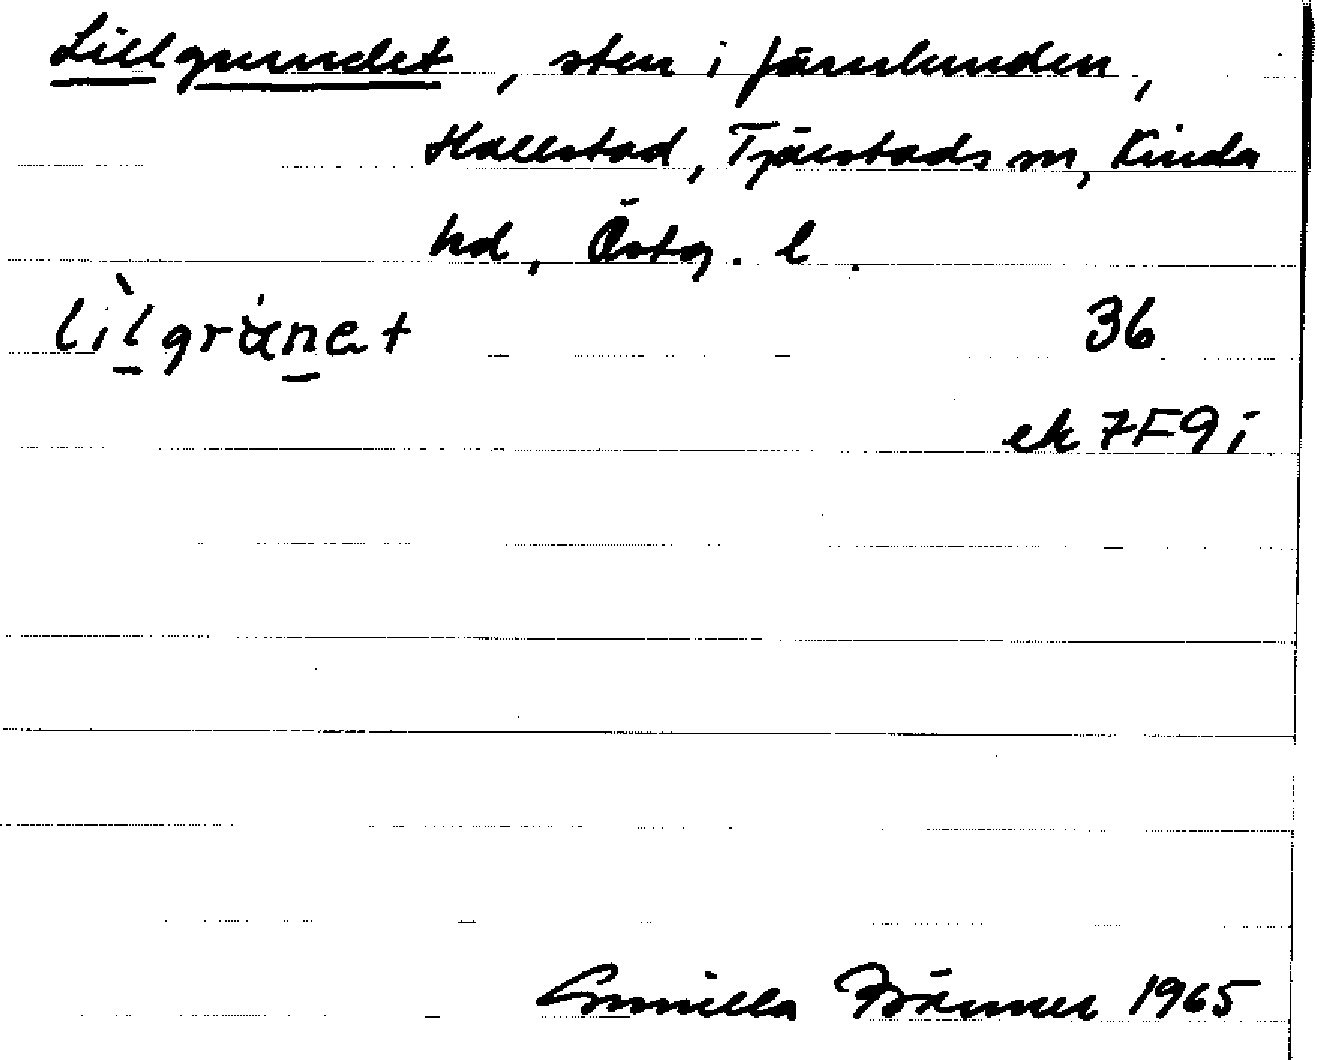 Lillgrundet, sten i Järnlunden,
Hallstad, Tjärstads sn, Kinda
hd, Östg. l.
lìlgrànet 36
ek 7F9i
Gunilla 1965